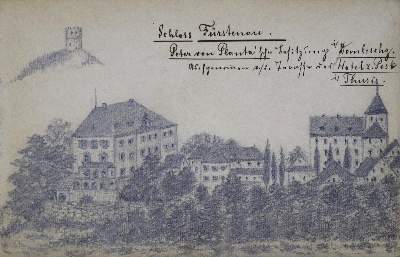 Schloss Fürstenau.
Peter von Planta'sche Besitzung i/Domleschg.
Aufgenommen a/d. Terasse des Hotel z. Post
i/ Thusis.